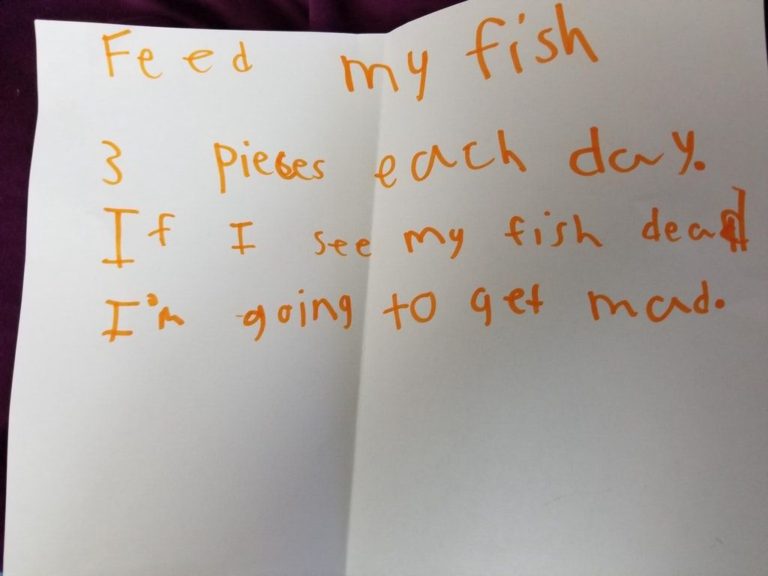 Feed my fish
3 pieces each day.
If I see my fish dead
I'm going to get mad.